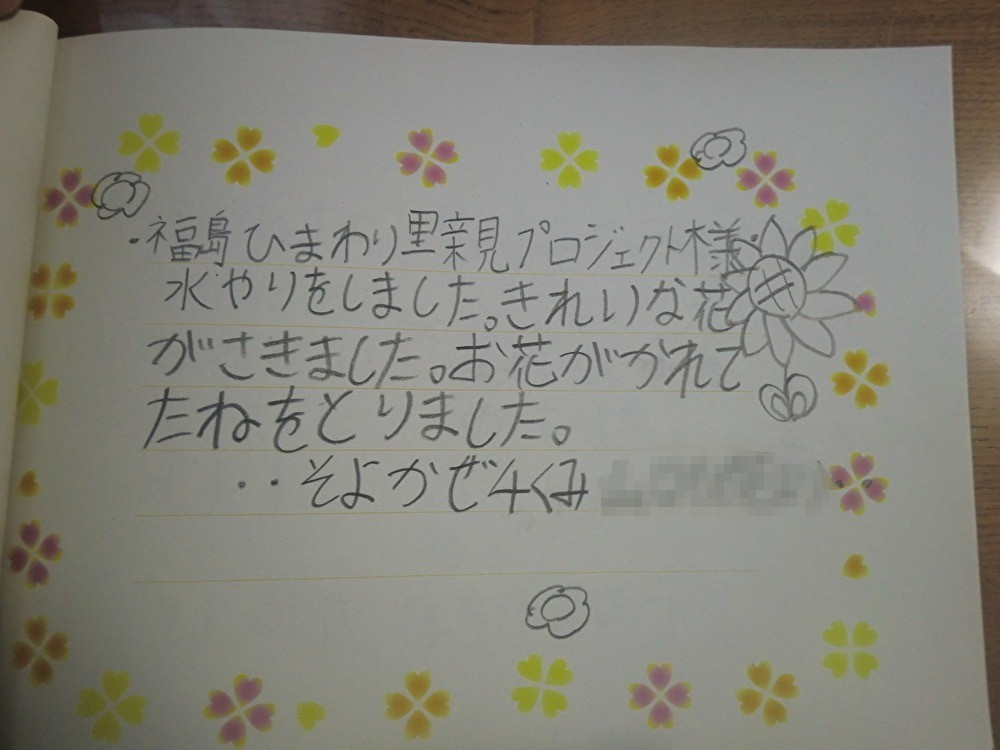 ・福島ひまわり里親見プロジェクト様
水やりをしました。きれいな花
がさきました。お花がかれて
たねをとりました。
・・そよかぜ4くみ